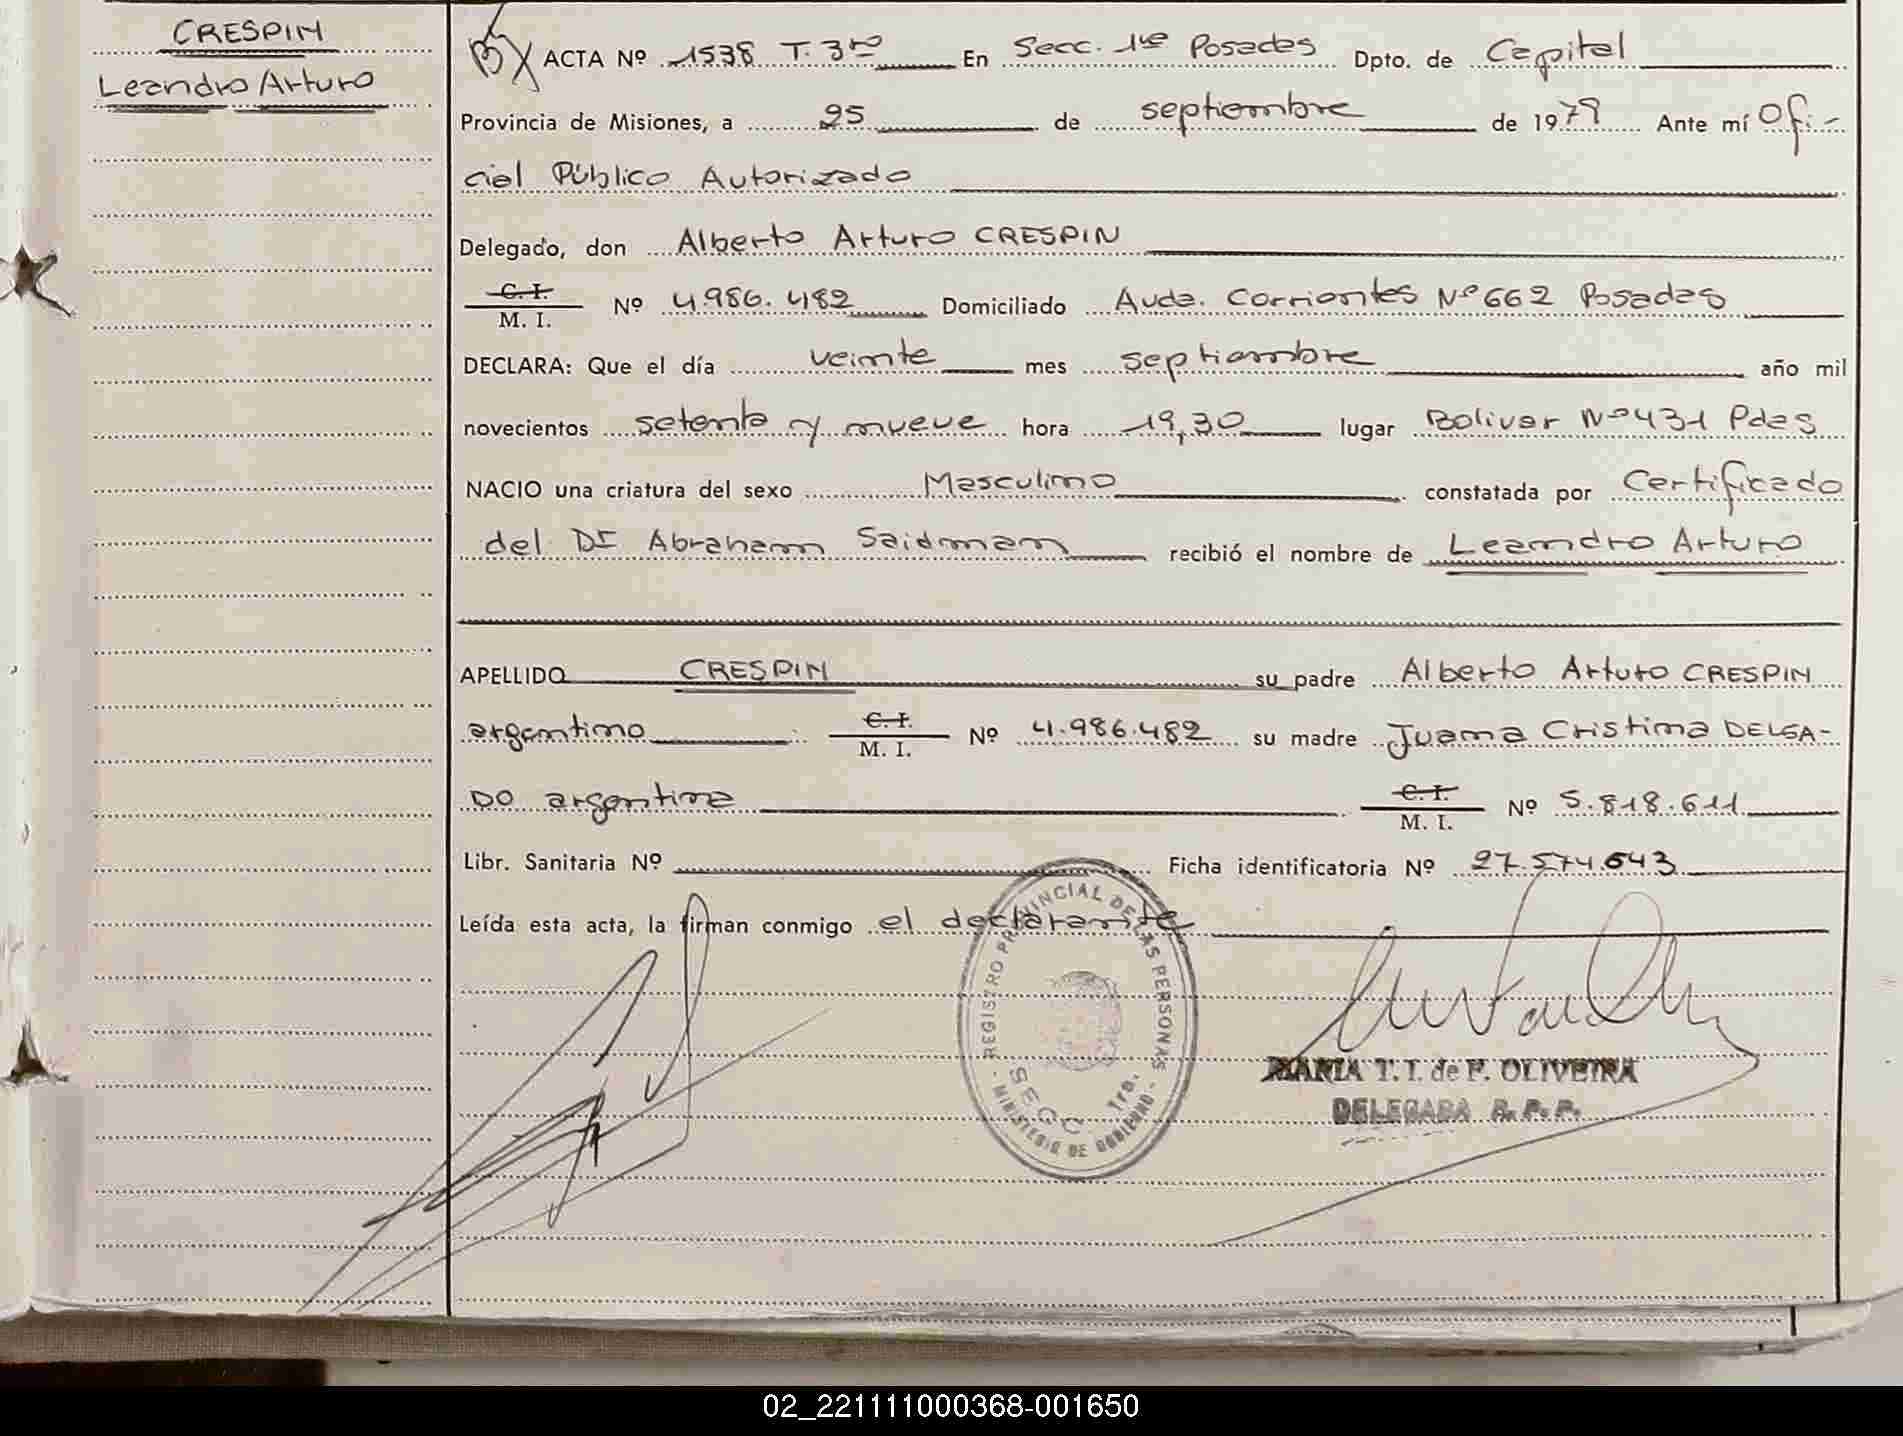 CRESPIN
Leandro Arturo
ACTA Nº 1538 T. 3ro En Secc. 1ra Posadas Dpto. de Capital
Provincia de Misiones, a 25 de septiembre de 1979 Ante mí Ofi-
cial Público Autorizado
Delegado, don Alberto Arturo CRESPIN
C. I.
M. I. Nº 4.986.482 Domiciliado Avda. Corrientes Nº 662 Posadas
DECLARA: Que el día veinte mes septiembre año mil
novecientos setenta y nueve hora 19,30 lugar Bolivar Nº 431 Pdas
NACIO una criatura del sexo Masculino constatada por Certificado
del Dr Abraham Saidman recibió el nombre de Leandro Arturo
APELLIDO CRESPIN su padre Alberto Arturo CRESPIN
argentino C. I.
M. I. Nº 4.986.482 su madre Juana Cristina DELGA-
DO argentina C. I.
M. I. Nº 5.818.611
Libr. Sanitaria Nº Ficha identificatoria Nº 27.574.643
Leída esta acta, la firman conmigo el declarante
REGISTRO PROVINCIAL DE LAS PERSONAS
SECC 1ra.
MINISTERIO DE GOBIERNO
MARIA T. I. de F. OLIVEIRA
DELEGADA R. P. P.
02_221111000368-001650